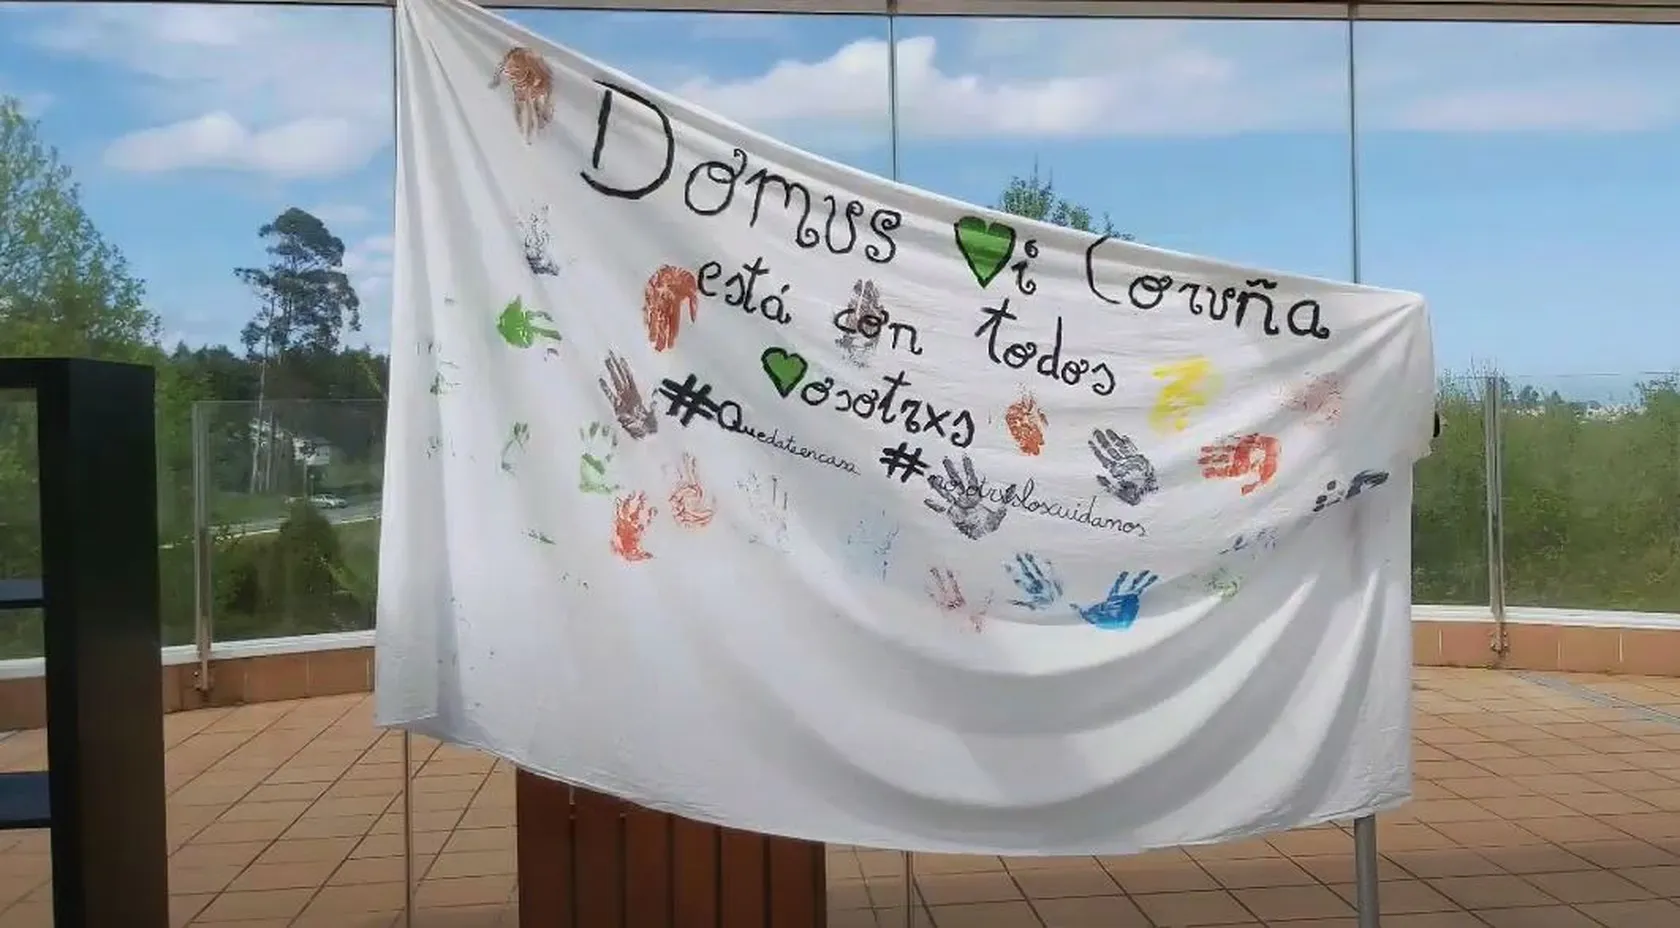 Domus Vi Coruña
está con todos
vosotrxs
#Quedateencasa #nosotrxsloscuidamos